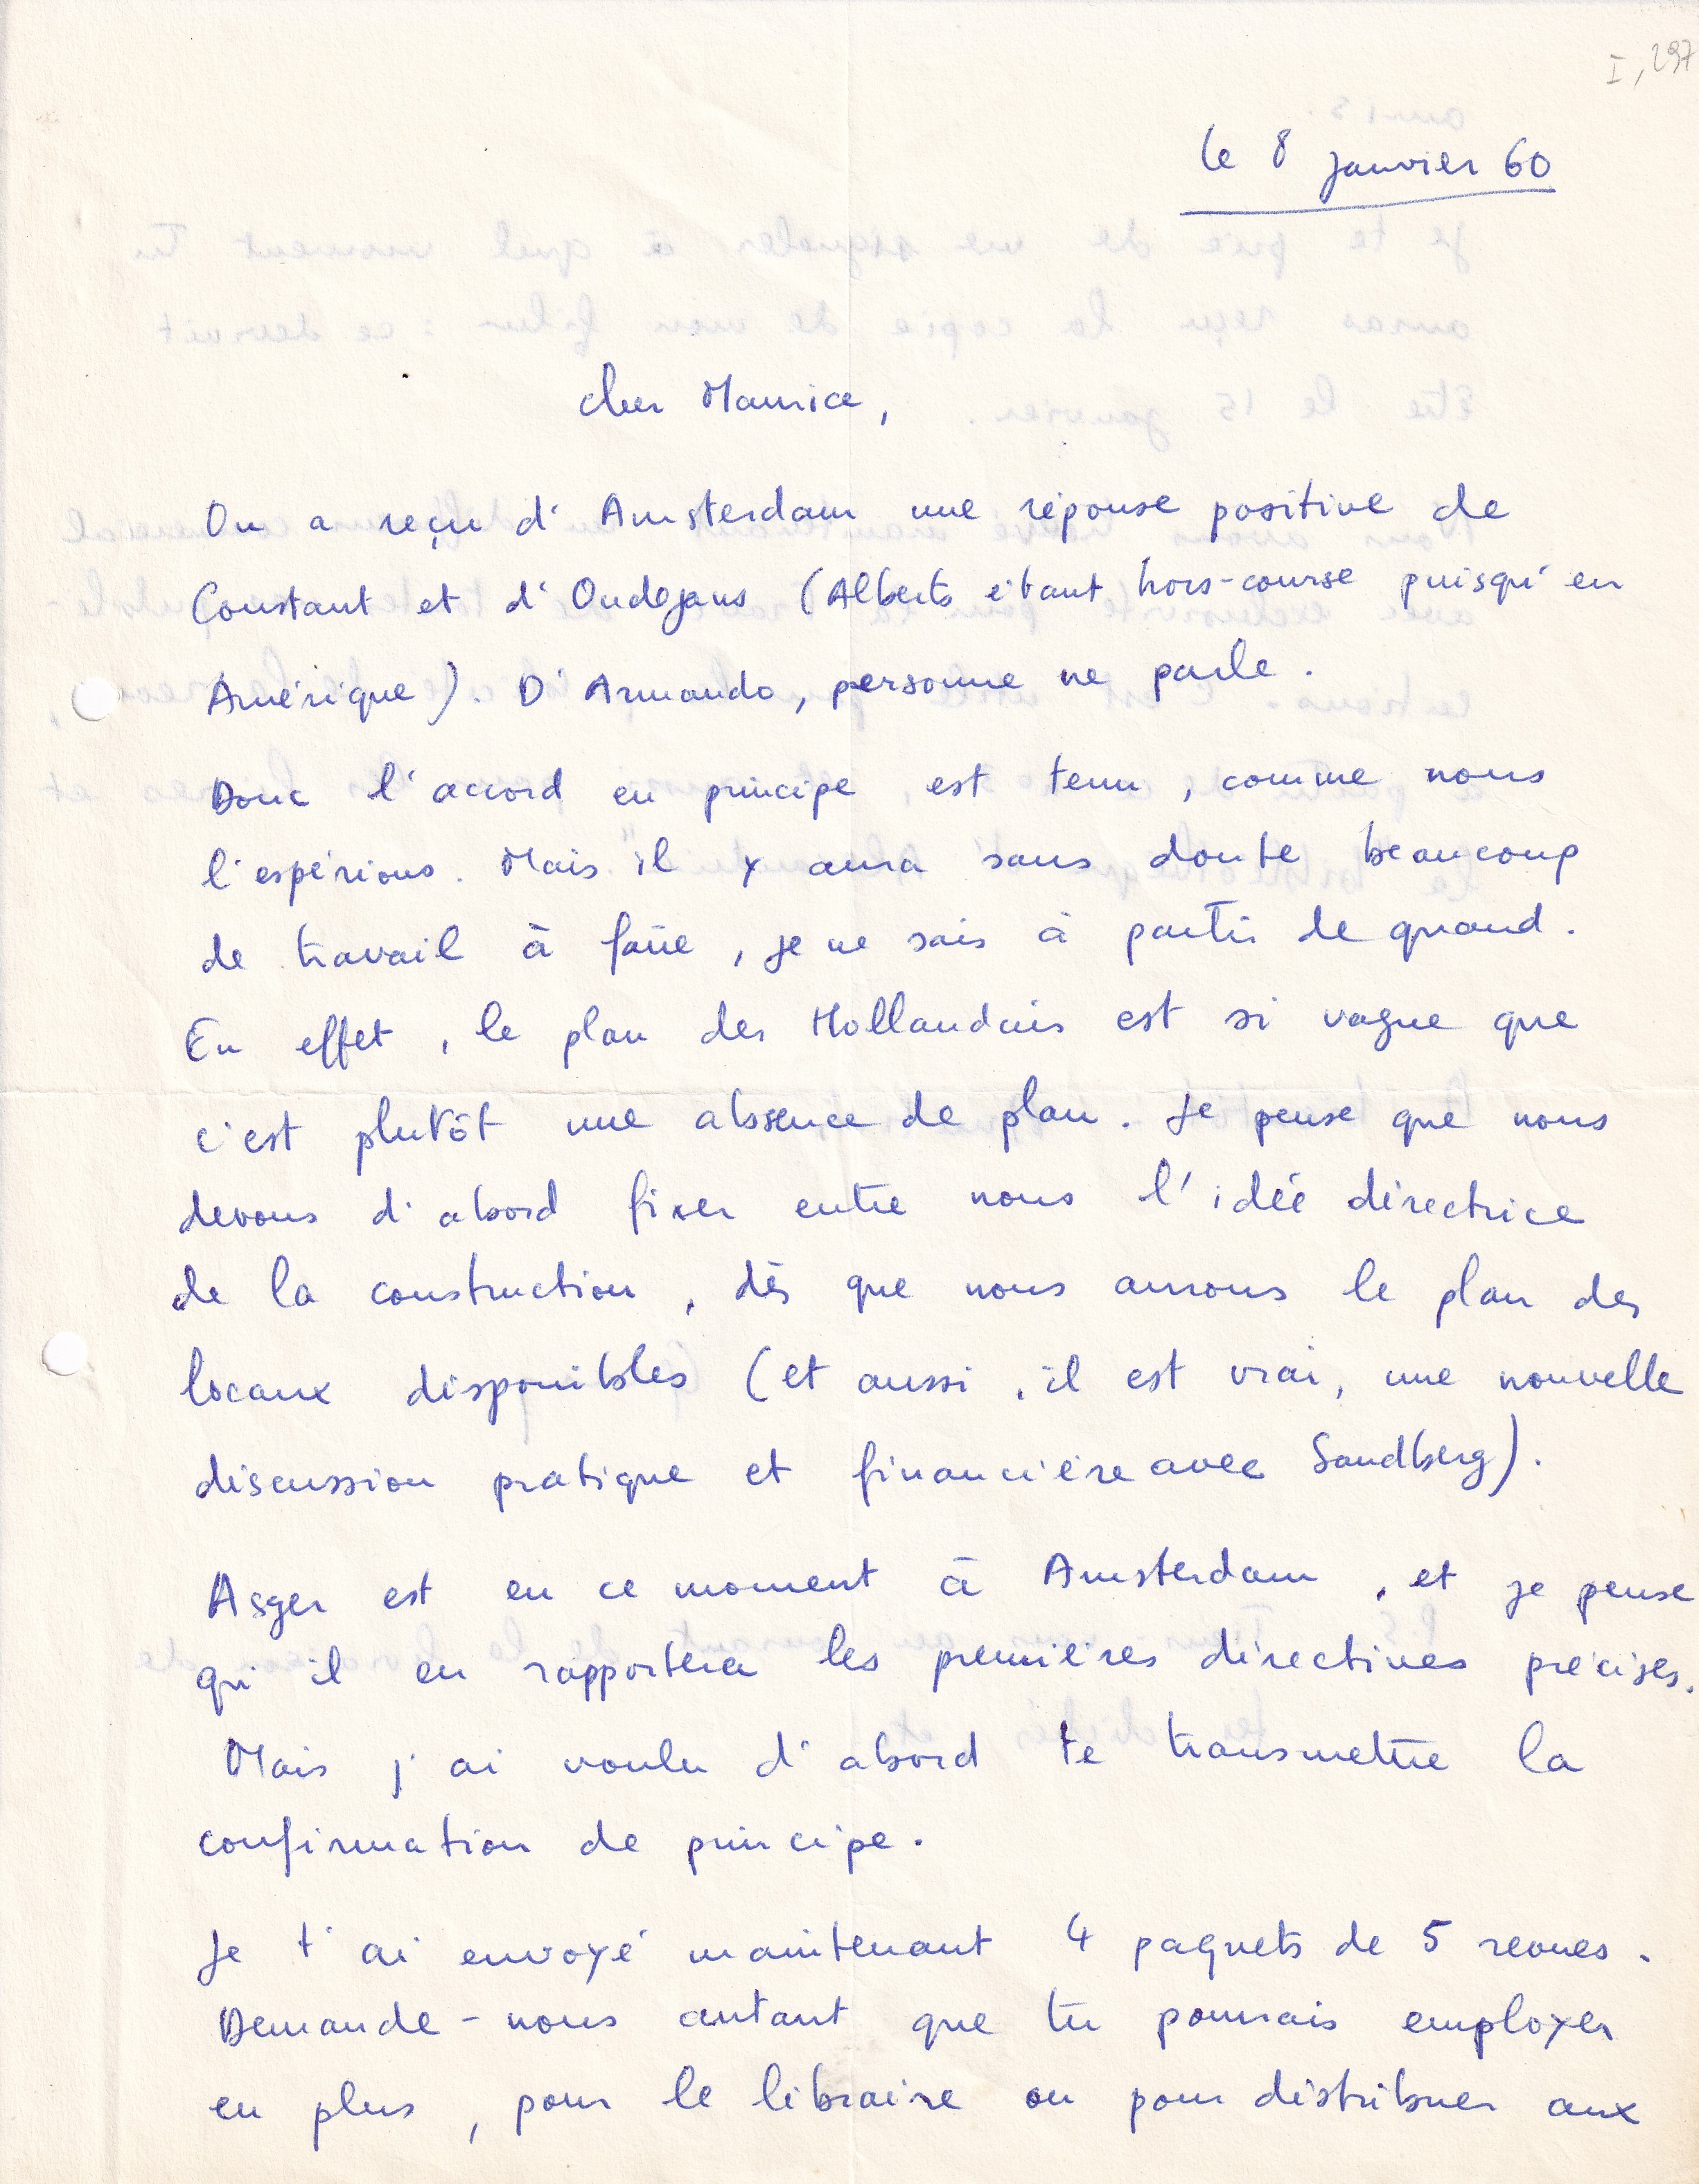 I, 297
le 8 janvier 60
cher Maurice,
On a reçu d'Amsterdam une réponse positive de
Constant et d'Oudejans (Alberts étant hors-course puisqu'en
Amérique). D'Armando, personne ne parle.
Donc l'accord en principe est tenu, comme nous
l'espérions. Mais il y aura sans doute beaucoup
de travail à faire, je ne sais à partir de quand.
En effet, le plan des Hollandais est si vague que
c'est plutôt une absence de plan. Je pense que nous
devons d'abord fixer entre nous l'idée directrice
de la construction, dès que nous aurons le plan des
locaux disponibles (et aussi, il est vrai, une nouvelle
discussion pratique et financière avec Sandberg).
Asger est en ce moment à Amsterdam, et je pense
qu'il en rapportera les premières directives précises.
Mais j'ai voulu d'abord te transmettre la
confirmation de principe.
Je t'ai envoyé maintenant 4 paquets de 5 revues.
Demande-nous autant que tu pourrais employer
en plus, pour le libraire ou pour distribuer aux